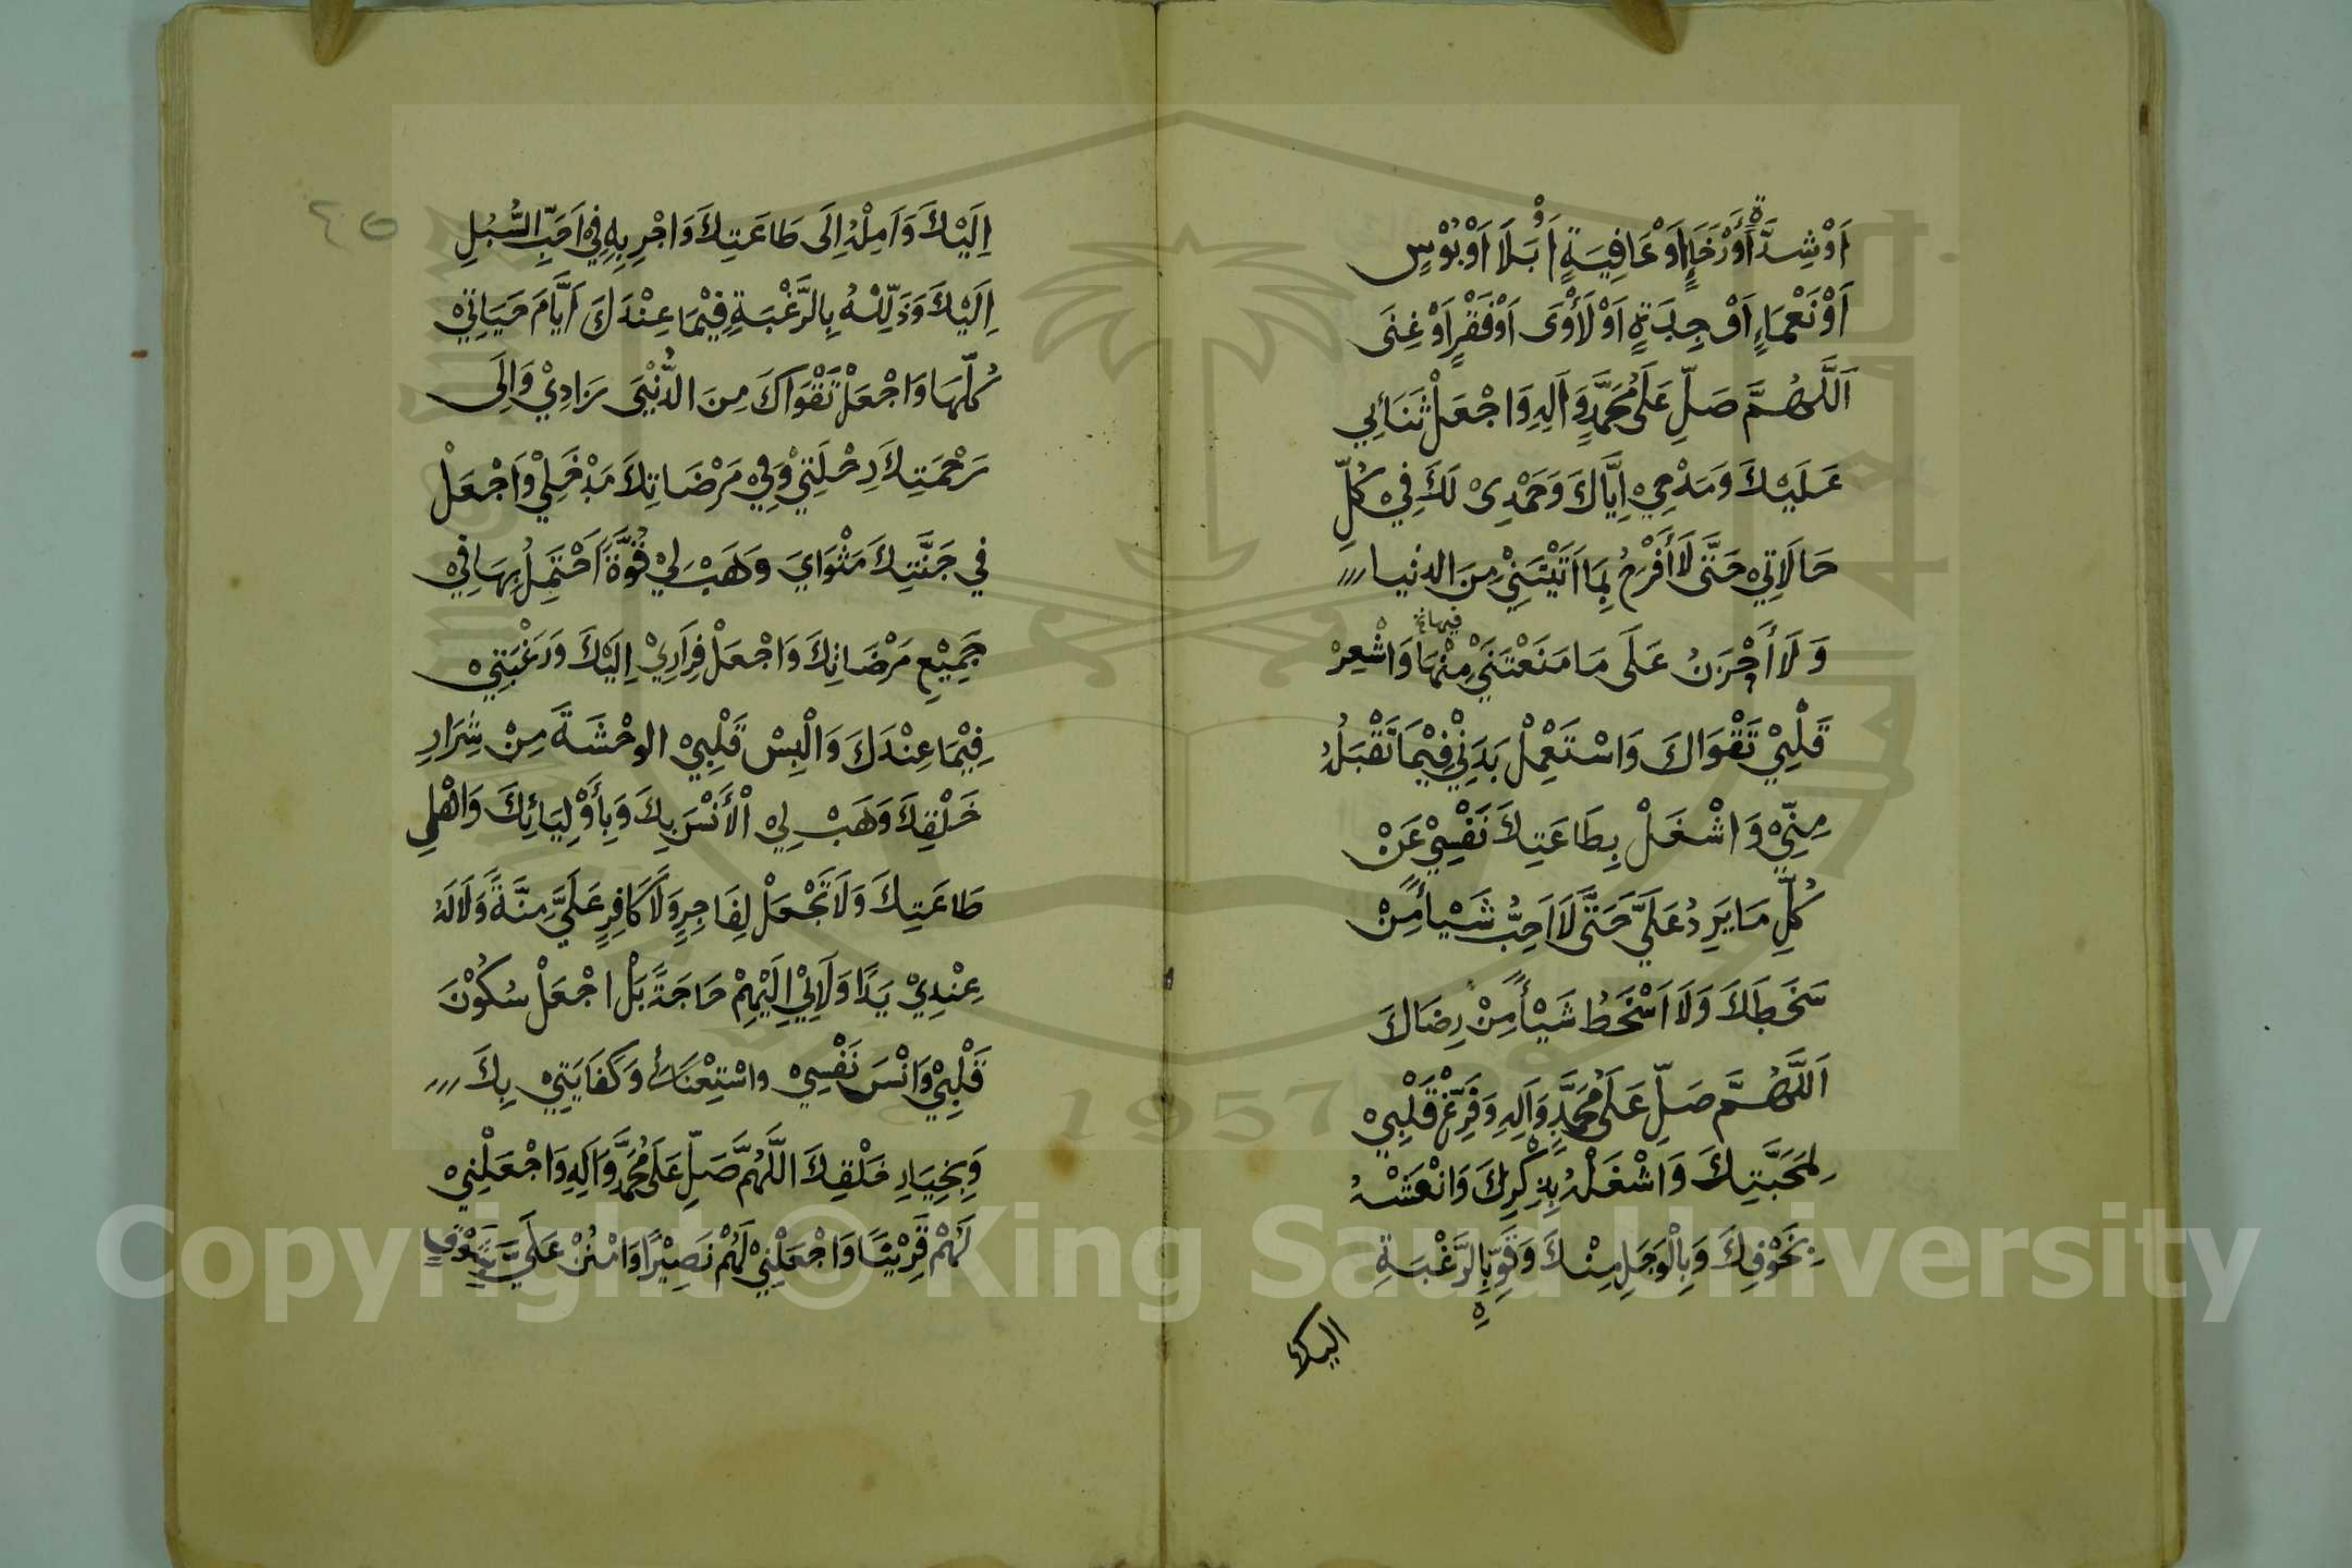 اَوْشِدَّةٍ أَوْرَخَاءٍ اَوْعَافِيَةٍ اَوْ بَلَاَ اَوْبُوْسٍ
اَوْنَعْمَاءٍ اَوْ جِدَةٍ اَوْلَأْوٰى اَوْفَقْرٍ اَوْغِنَى
اَللَّهُمَّ صَلِّ عَلَى مُحَمَّدٍ وَاٰلِهِ وَاجْعَلْ ثَنَائِي
عَلَيْكَ وَمَدْحِيْ اِيَّاكَ وَحَمْدِىْ لَكَ فِيْ كُلِّ
حَالَاتِيْ حَتَّى لَاأَفْرَحُ بِمَا اَتَيْتَنِيْ مِنَ الدنيا
وَلَا أَحْزَنُ عَلَى مَا مَنَعْتَنِيْ مِنْهَا وَاشْعِرْ
فيها
قَلْبِيْ تَقْوَاكَ وَاسْتَعْمِلْ بَدَنِيْ فِيْمَا تَقْبَلُهُ
مِنِّيْ وَاشْغَلْ بِطَاعَتِكَ نَفْسِيْ عَنْ
كُلِّ مَا يَرِدُ عَلَيَّ حَتَّى لَا اَحِبُّ شَيْأً مِنْ
سَخَطِكَ وَلَا اَسْخَطُ شَيْأً مِنْ رِضَاكَ
اَللَّهُمَّ صَلِّ عَلَى مُحَمَّدٍ وَاٰلِهِ وَفَرِّغْ قَلْبِيْ
لِمَحَبَّتِكَ وَاشْغَلْهُ بِذِكْرِكَ وَانْعَشْهُ
بِخَوْفِكَ وَبِالْوَجَلِ مِنْكَ وَقَوِّهِ بِالرَّغْبَةِ
اليك
٤٥
اِلَيْكَ وَاَمِلْهُ اِلَى طَاعَتِكَ وَاجْرِ بِهِ فِيْ اَحَبِّ السُّبُلِ
اِلَيْكَ وَذَلِّلْهُ بِالرَّغْبَةِ فِيْمَا عِنْدَكَ اَيَّامَ حَيَاتِيْ
كُلِّهَا وَاجْعَلْ تَقْوَاكَ مِنَ الدُّنْيَى زَادِيْ وَاِلَى
رَحْمَتِكَ رِحْلَتِيْ وَفِيْ مَرْضَاتِكَ مَدْخَلِيْ وَاجْعَلْ
فِي جَنَّتِكَ مَثْوَايَ وَهَبْ لِيْ قُوَّةً اَحْتَمِلُ بِهَا فِيْ
جَمِيْعِ مَرْضَاتِكَ وَاجْعَلْ فِرَارِيْ اِلَيْكَ وَرَغْبَتِيْ
فِيْمَا عِنْدَكَ وَالْبِسْ قَلْبِيْ الوحْشَةَ مِنْ شِرَارِ
خَلْقِكَ وَهَبْ لِيْ الْأَنْسَ بِكَ وَبِأَوْلِيَائِكَ وَاهْلِ
طَاعَتِكَ وَلَا تَجْعَلْ لِفَاجِرٍ وَلَا كَافِرٍ عَلَيَّ مِنَّةً وَلَا لَهُ
عِنْدِيْ يَدًا وَلَا لِيْ اِلَيْهِمْ حَاجَةً بَلْ اجْعَلْ سُكُوْنَ
قَلْبِيْ وَانْسَ نَفْسِيْ واسْتِغْنَائي وَكَفَايَتِيْ بِكَ
وَبِخِيَارِ خَلْقِكَ اللَّهُمَّ صَلِّ عَلَى مُحَمَّدٍ وَاٰلِهِ وَاجْعَلْنِيْ
لَهُمْ قَرِيْنًا وَاجْعَلْنِيْ لَهُمْ نَصِيْرًا وَامْنُنْ عَلَيَّ بِشَوْقٍ
1957
Copyright © King Saud University